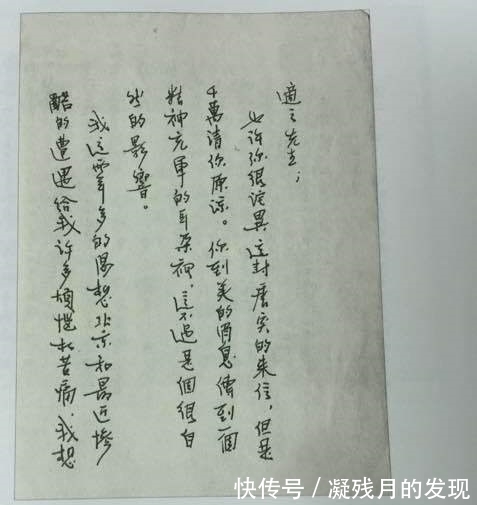 適之先生；
也许你很诧異这封唐突的来信，但是
千萬请你原谅。你到美的消息傳到一個
精神充軍的耳朵裡，這不过是個很自
然的影響。
我这两年多的渴想北京和最近惨
酷的遭遇给我许多烦恼和苦痛。我想
快传号/凝残月的发现